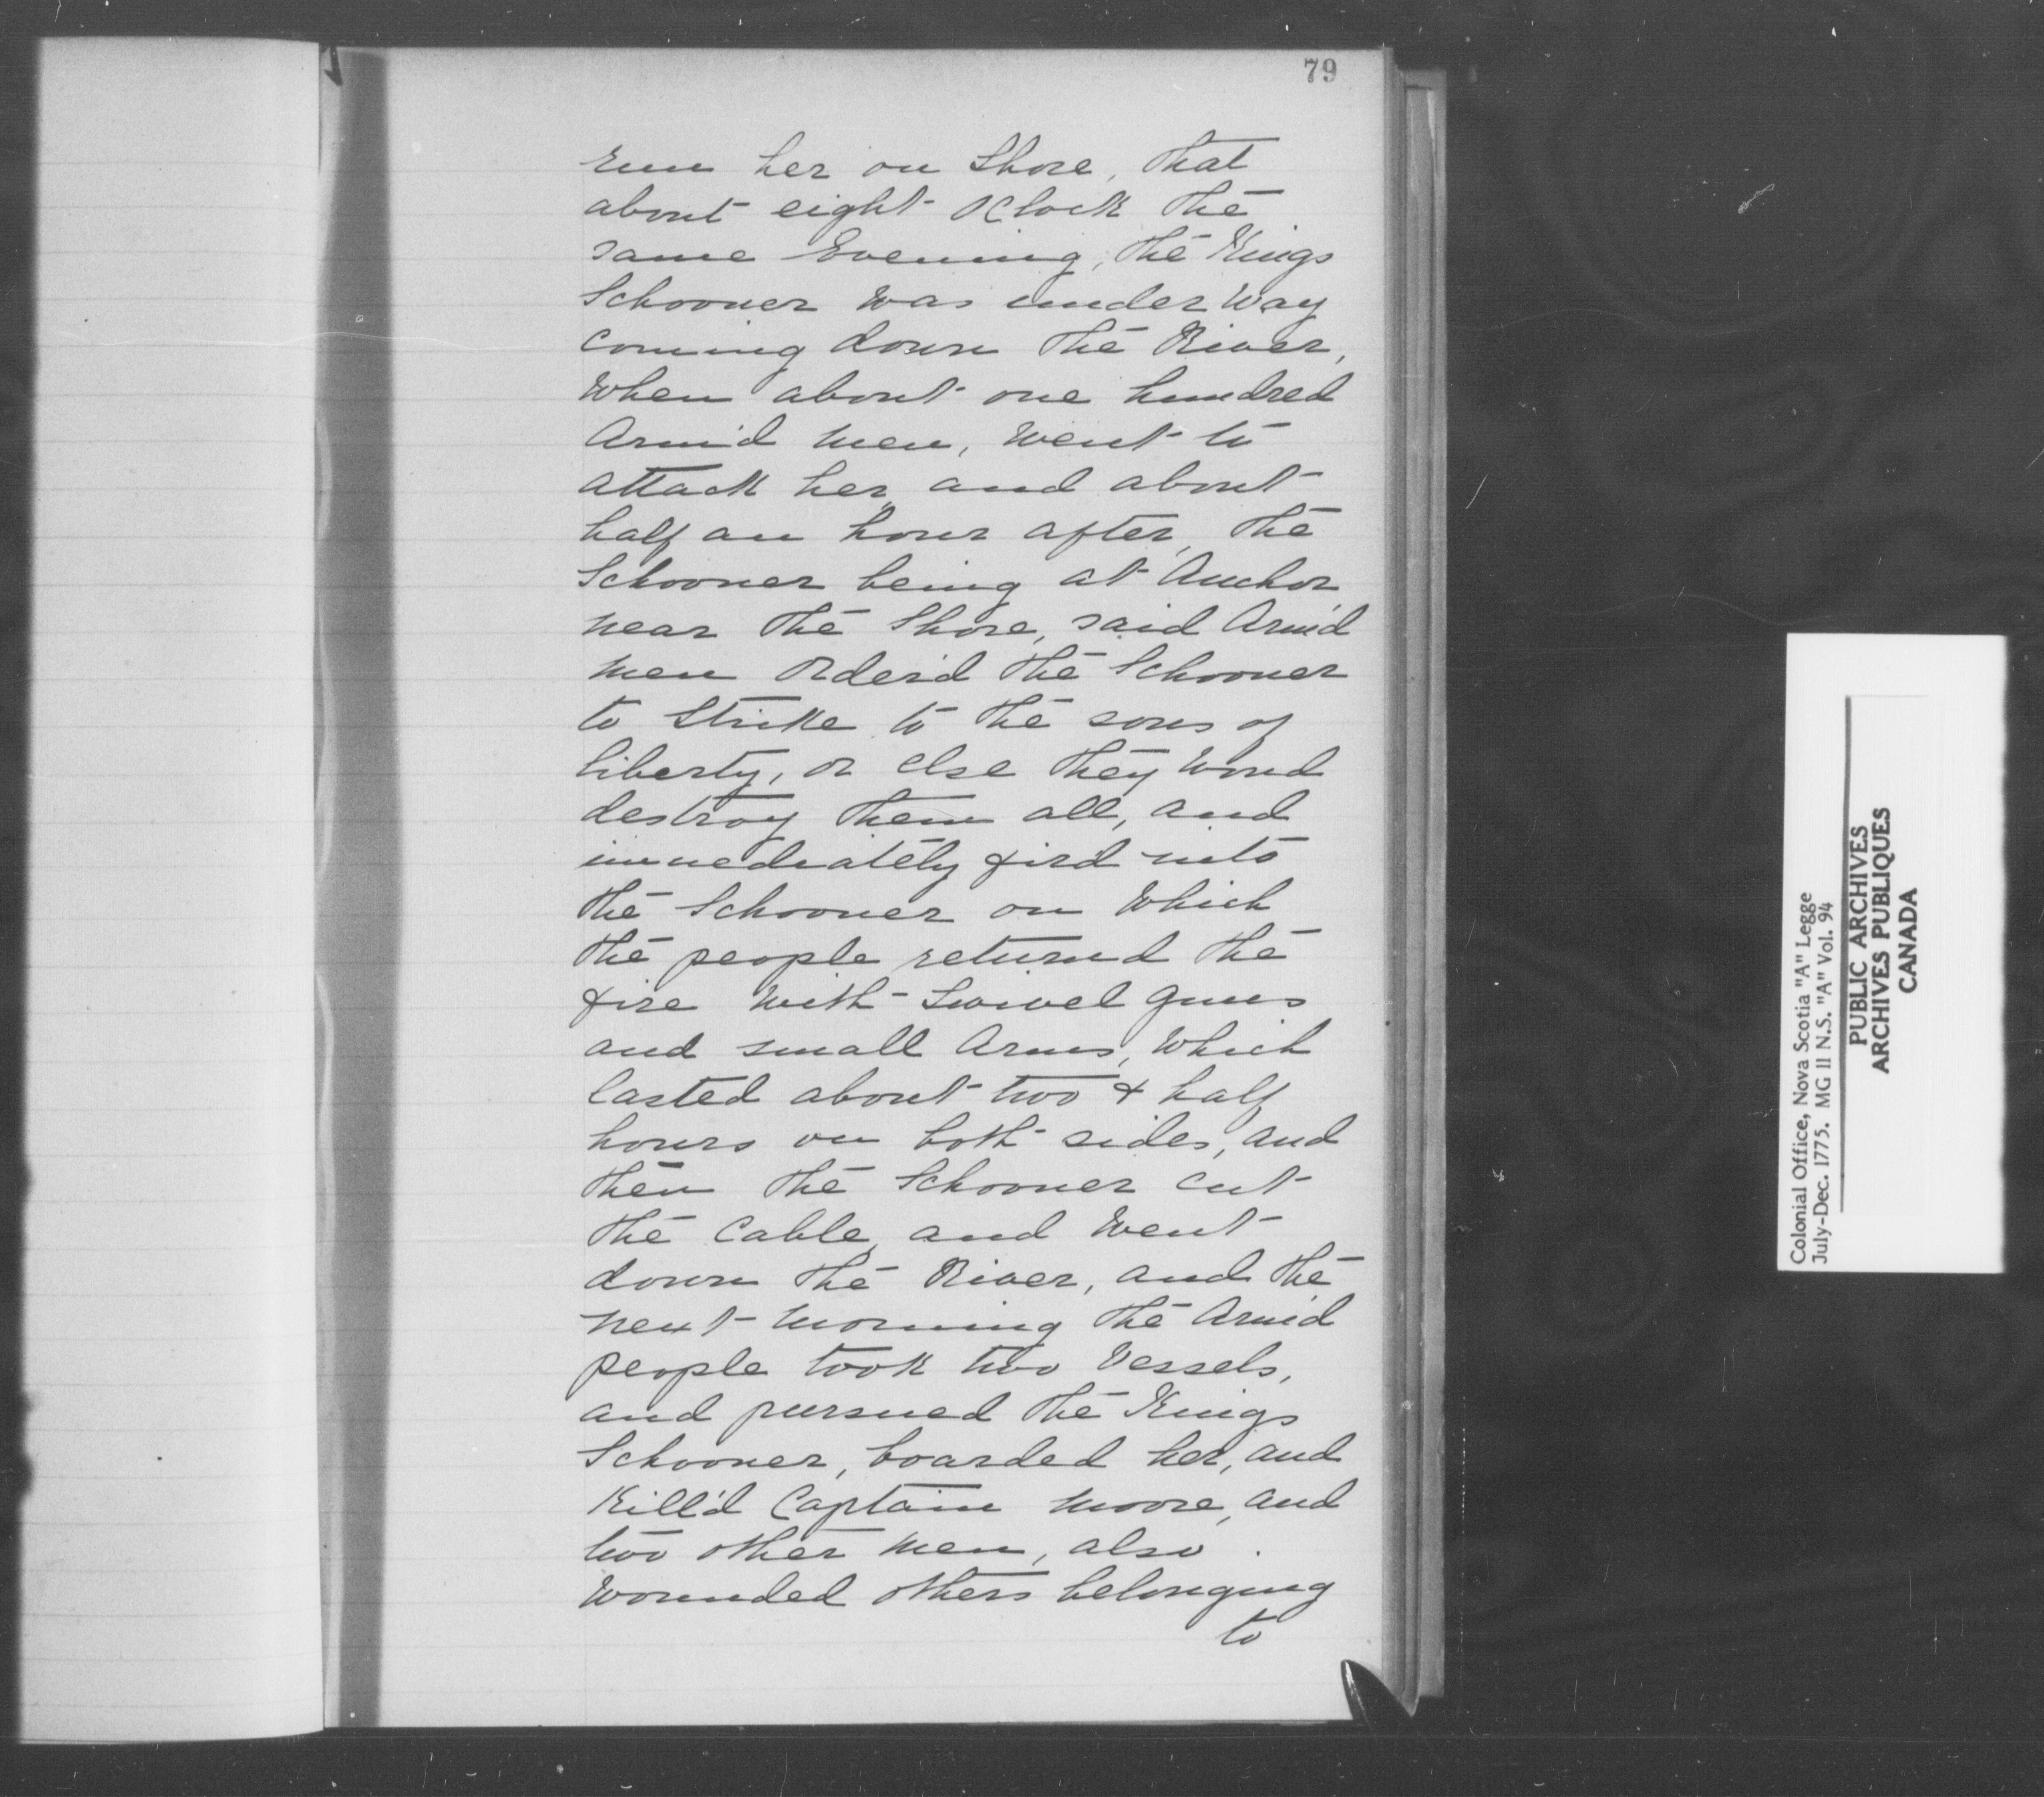 79
run her on Shore, that
about eight oClock the
same Evening, the Kings
Schooner was under way
coming down the River,
When about one hundred
Arm'd men, went to
attack her, and about
half an hour after, the
Schooner being at Anchor
near the Shore, said Arm'd
men Order'd the Schooner
to Strike to the sons of
liberty, or else they woud
destroy them all, and
immediately fir'd into
the Schooner on which
the people returned the
fire with Swivel guns
and small Arms, which
lasted about two & half
hours on both sides, and
then the Schooner cut
the Cable, and went
down the River, and the
next morning the Arm'd
people took two Vessels,
and pursued the Kings
Schooner, boarded her, and
Kill'd Captain Moore, and
two other men, also
wounded others belonging
to
Colonial Office, Nova Scotia "A" Legge
July-Dec. 1775. MG 11 N.S. "A" Vol. 94
PUBLIC ARCHIVES
ARCHIVES PUBLIQUES
CANADA